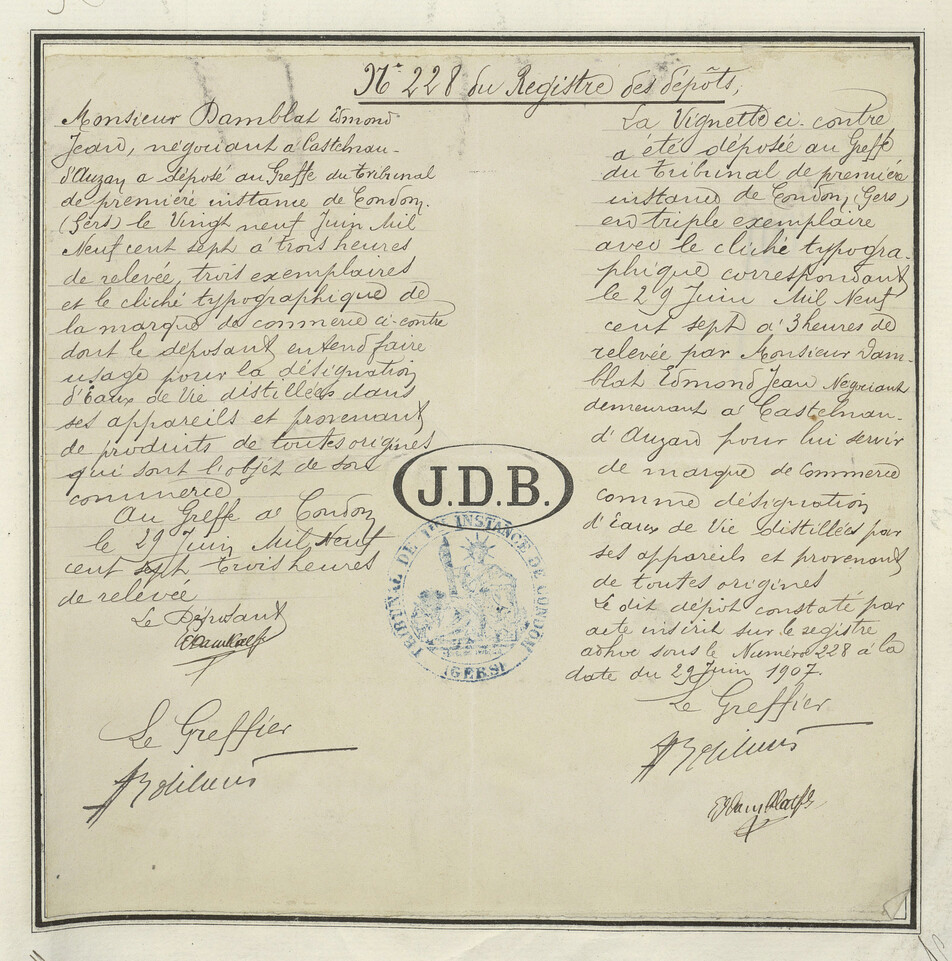 N° 228 du Registre des dépôts,
Monsieur Damblat Edmond
Jean, négociant à Castelnau-
d'Auzan a déposé au Greffe du tribunal
de première instance de Condom.
(Gers) le Vingt neuf Juin Mil
Neuf cent sept à trois heures
de relevée, trois exemplaires
et le cliché typographique de
la marque de commerce ci-contre
dont le déposant entend faire
usage pour la désignation
d'Eaux de Vie distillées dans
ses appareils et provenant
de produits de toutes origines
qui sont l'objet de son
commerce
Au Greffe à Condom
le 29 Juin Mil Neuf
cent sept trois heures
de relevée
Le Déposant
EDamblat
Le Greffier
La Vignette ci-contre
a été déposée au Greffe
du tribunal de première
instance de Condom, (Gers)
en triple exemplaire
avec le cliché typogra-
phique correspondant
le 29 Juin Mil Neuf
cent sept à 3 heures de
relevée par Monsieur Dam-
blat Edmond Jean Négociant
demeurant à Castelnau-
d'Auzan pour lui servir
de marque de commerce
comme désignation
d'Eaux de Vie distillées par
ses appareils et provenant
de toutes origines
Le dit dépôt constaté par
acte inscrit sur le registre
adhoc sous le Numéro 228 à la
date du 29 Juin 1907.
Le Greffier
EDamblat
J.D.B.
TRIBUNAL DE 1RE INSTANCE DE CONDOM
(GERS)